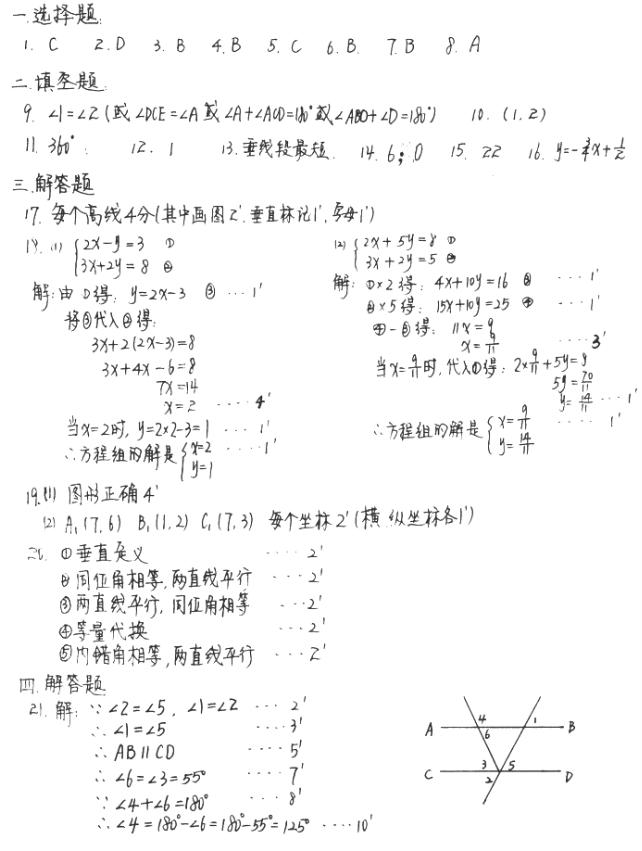 一.选择题:
1. C 2. D 3. B 4. B 5. C 6. B. 7. B 8. A
二.填空题:
9. ∠1=∠2 (或∠DCE=∠A或∠A+∠ACD=180°或∠ABD+∠D=180°) 10. (1, 2)
11. 360°. 12. 1 13. 垂线段最短. 14. 6; 0 15. 22 16. y=-3/4x+1/2
三.解答题
17. 每个高线4分(其中画图2'.垂直标记1', 字母1')
18. (1) {2x-y=3 ①
3x+2y=8 ②
解:由①得: y=2x-3 ③ ···1'
将③代入②得:
3x+2(2x-3)=8
3x+4x-6=8
7x=14
x=2 ····4'
当x=2时, y=2×2-3=1 ···1'
∴方程组的解是{x=2 ····1'
y=1
(2) {2x+5y=8 ①
3x+2y=5 ②
解: ①×2得: 4x+10y=16 ③ ····1'
②×5得: 15x+10y=25 ④ ····1'
④-③得: 11x=9
x=9/11 ····3'
当x=9/11时,代入①得: 2×9/11+5y=8
5y=70/11
y=14/11 ···1'
∴方程组的解是{x=9/11 ····1'
y=14/11
19.(1) 图形正确4'
(2) A₁(7, 6) B₁(1, 2) C₁(7, 3) 每个坐标2'(横.纵坐标各1')
20. ①垂直定义 ····2'
②同位角相等,两直线平行 ····2'
③两直线平行,同位角相等 ···2'
④等量代换 ···2'
⑤内错角相等,两直线平行 ···2'
四.解答题
21. 解: ∵∠2=∠5, ∠1=∠2 ···2'
∴∠1=∠5 ····3'
∴AB∥CD ····5'
∴∠6=∠3=55° ····7'
∵∠4+∠6=180° ····8'
∴∠4=180°-∠6=180°-55°=125° ····10'
A 4 6 1 B
C 3 2 5 D